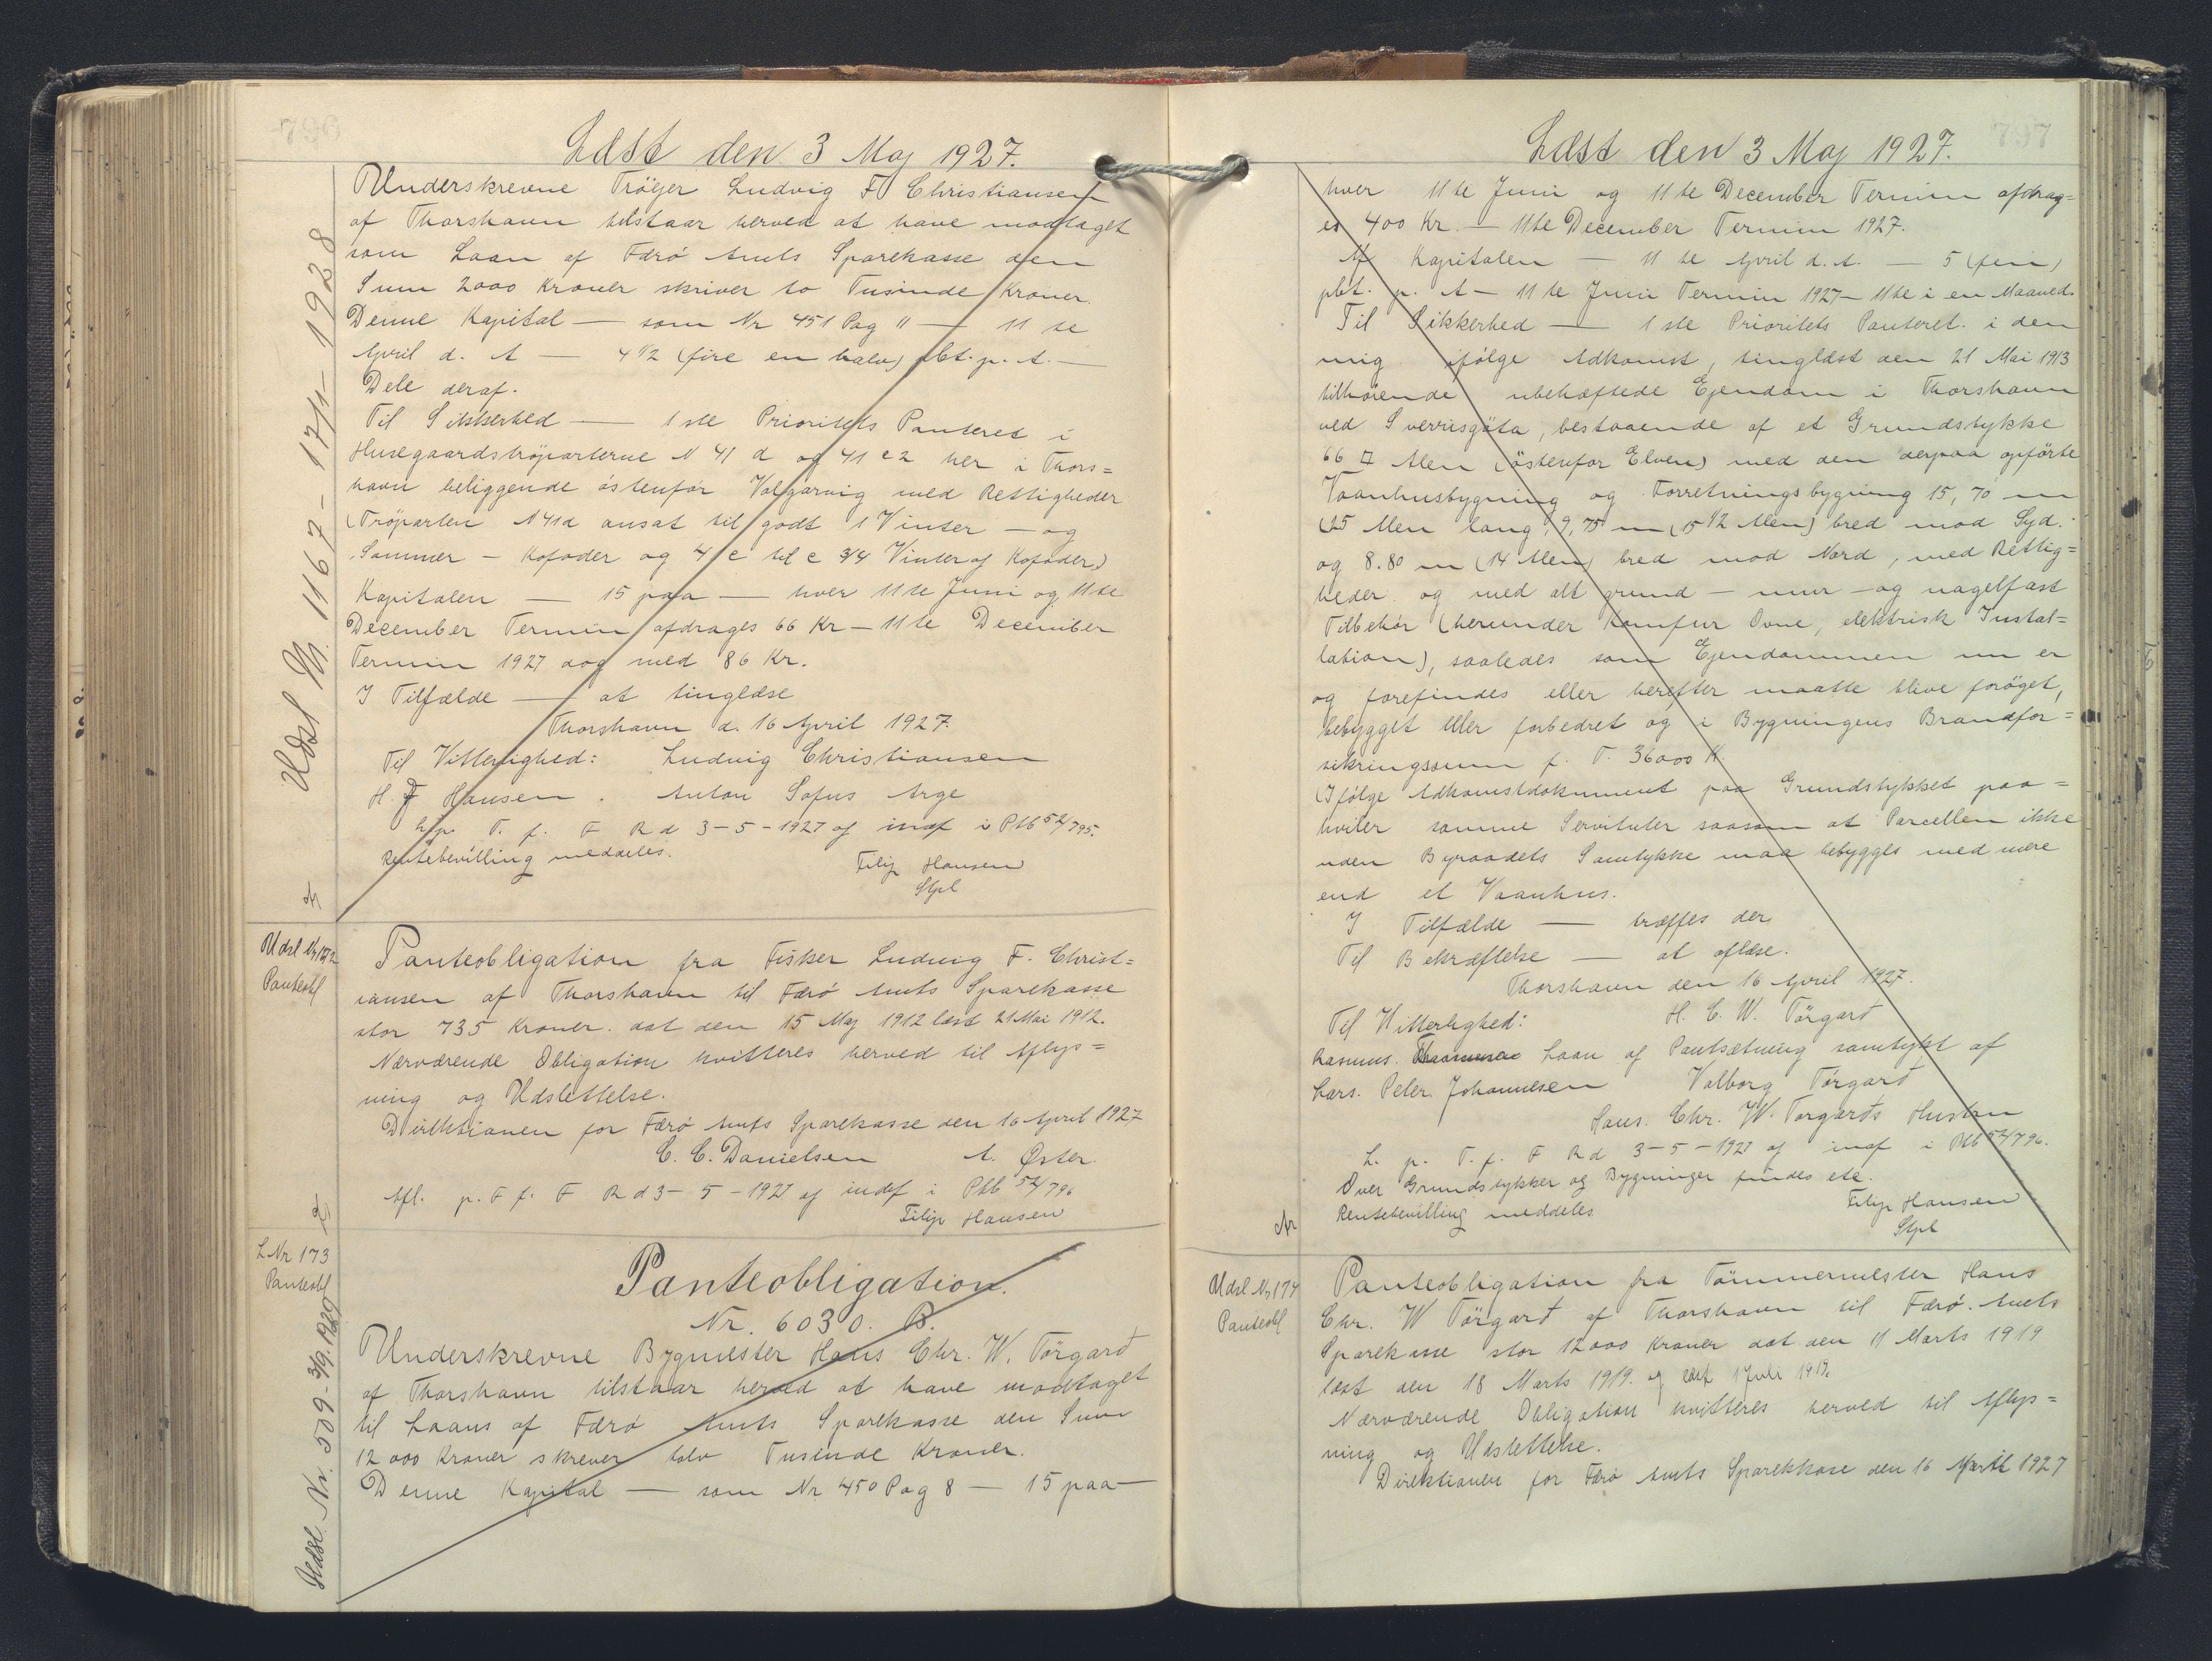 796
Læst den 3 Maj 1927.
Underskrevne Tröjer Ludvig F Christiansen
af Thorshavn tilstaar herved at have modtaget
som Laan af Færö Amts Sparekasse den
Sum 2000 Kroner skriver to Tusinde Kroner.
Denne Kapital — som Nr 451 Pag " — 11 te
April d. A — 4 1/2 (fire en halv) pbt. p. A. —
Dele deraf.
Til Sikkerhed — 1ste Prioritets Panteret i
Husegaardströparterne N 41 d og 41 c 2 her i Thors=
havn beliggende östenfor Valgarvig med Rettigheder
(Tröparten N 41d ansat til godt 1 Vinter — og
Sommer — Kofoder og 4/c til c 3/4 Vinter af Kofoder)
Kapitalen — 15 paa — hver 11te Juni og 11te
December Termin afdrages 66 Kr — 11te December
Termin 1927 dog med 86 Kr.
I Tilfælde — at tinglæse
Thorshavn d. 16 April 1927.
Til Vitterlighed: Ludvig Christiansen
H. J Hansen. Anton Sofus Arge
T. f. F R d 3-5-1927 og indf i Ptb 52/795.
Rentebevilling meddeles.
Filip Hansen
Stpl
Udsl Nr. 1167 - 17/11 - 1928
Udsl Nr 172
Panteobl
Panteobligation fra Fisker Ludvig F. Christ=
iansen af Thorshavn til Færö Amts Sparekasse
stor 735 Kroner. dat den 15 Maj 1912 læst 21 Mai 1912.
Nærværende Obligation kvitteres herved til Aflys=
ning og Udslettelse.
Direktionen for Færö Amts Sparekasse den 16 April 1927
C. C. Danielsen A. Øster.
Afl. p. T f. F R d 3-5-1927 og indf i Ptb 52/796
Filip Hansen
L Nr 173
Panteobl
Udsl. Nr. 509 - 3/9. 1929
Panteobligation.
Nr. 6030. B.
Underskrevne Bygmester Hans Chr. W. Törgarð
af Thorshavn tilstaar herved at have modtaget
til Laans af Færö Amts Sparekasse den Sum
12000 Kroner skrever tolv Tusinde Kroner.
Denne Kapital — som Nr 450 Pag 8 — 15 paa —
797
Læst den 3 Maj 1927.
hver 11te Juni og 11te December Termin afdrag=
es 400 Kr. — 11te December Termin 1927.
Af Kapitalen — 11 te April d. A. — 5 (fem)
pbt. p. A — 11te Juni Termin 1927 — 11te i en Maaned.
Til Sikkerhed — 1ste Prioritets Panteret. i den
mig ifölge Adkomst, tinglæst den 21 Mai 1913
tilhörende ubehæftede Ejendom i Thorshavn
ved Sverrisgöta, bestaaende af et Grundstykke
66 □ Alen (östenfor Elven) med den derpaa opförte
Vaanhusbygning og Forretningsbygning 15,70 m
(25 Alen lang, 9,75 m (15 1/2 Alen) bred mod Syd.
og 8.80 m (14 Alen) bred mod Nord, med Rettig=
heder og med alt grund — mur — og nagelfast
Tilbehör (herunder Komfur Ovne, elektrisk Instal=
lation), saaledes som Ejendommen nu er
og forefindes eller herefter maatte blive foröget,
bebygget eller forbedret og i Bygningens Brandfor=
sikringssum f. T. 36000 K.
(Ifölge Adkomstdokument paa Grundstykket paa=
hviler samme Servituter saasom at Parcellen ikke
uden Byraadets Samtykke maa bebygges med mere
end et Vaanhus.
I Tilfælde — træffes der
Til Bekræftelse — at aflæse.
Thorshavn den 16 April 1927.
Til Witterlighed: H. C. W. Törgarð
Rasmus. Laan og Pantsætning samtykt af
Lars. Peter Johannesen Valborg Törgarð
Hans. Chr. W. Torgarðs Hustru
L. p. T. f. F R d 3-5-1927 og indf i Ptb 52/796.
Over Grundstykker og Bygninger findes etc.
Rentebevilling meddeles
Filip Hansen
Stpl
Udsl Nr 174
Panteobl
Panteobligation fra Tömmermester Hans
Chr. W Törgarð af Thorshavn til Færö. Amts
Sparekasse stor 12000 Kroner dat den 11 Marts 1919
læst den 18 Marts 1919. og læst 1 Juli 1919.
Nærværende Obligation kvitteres herved til Aflys=
ning og Udslettelse.
Direktionen for Færö Amts Sparekkase den 16 April 1927